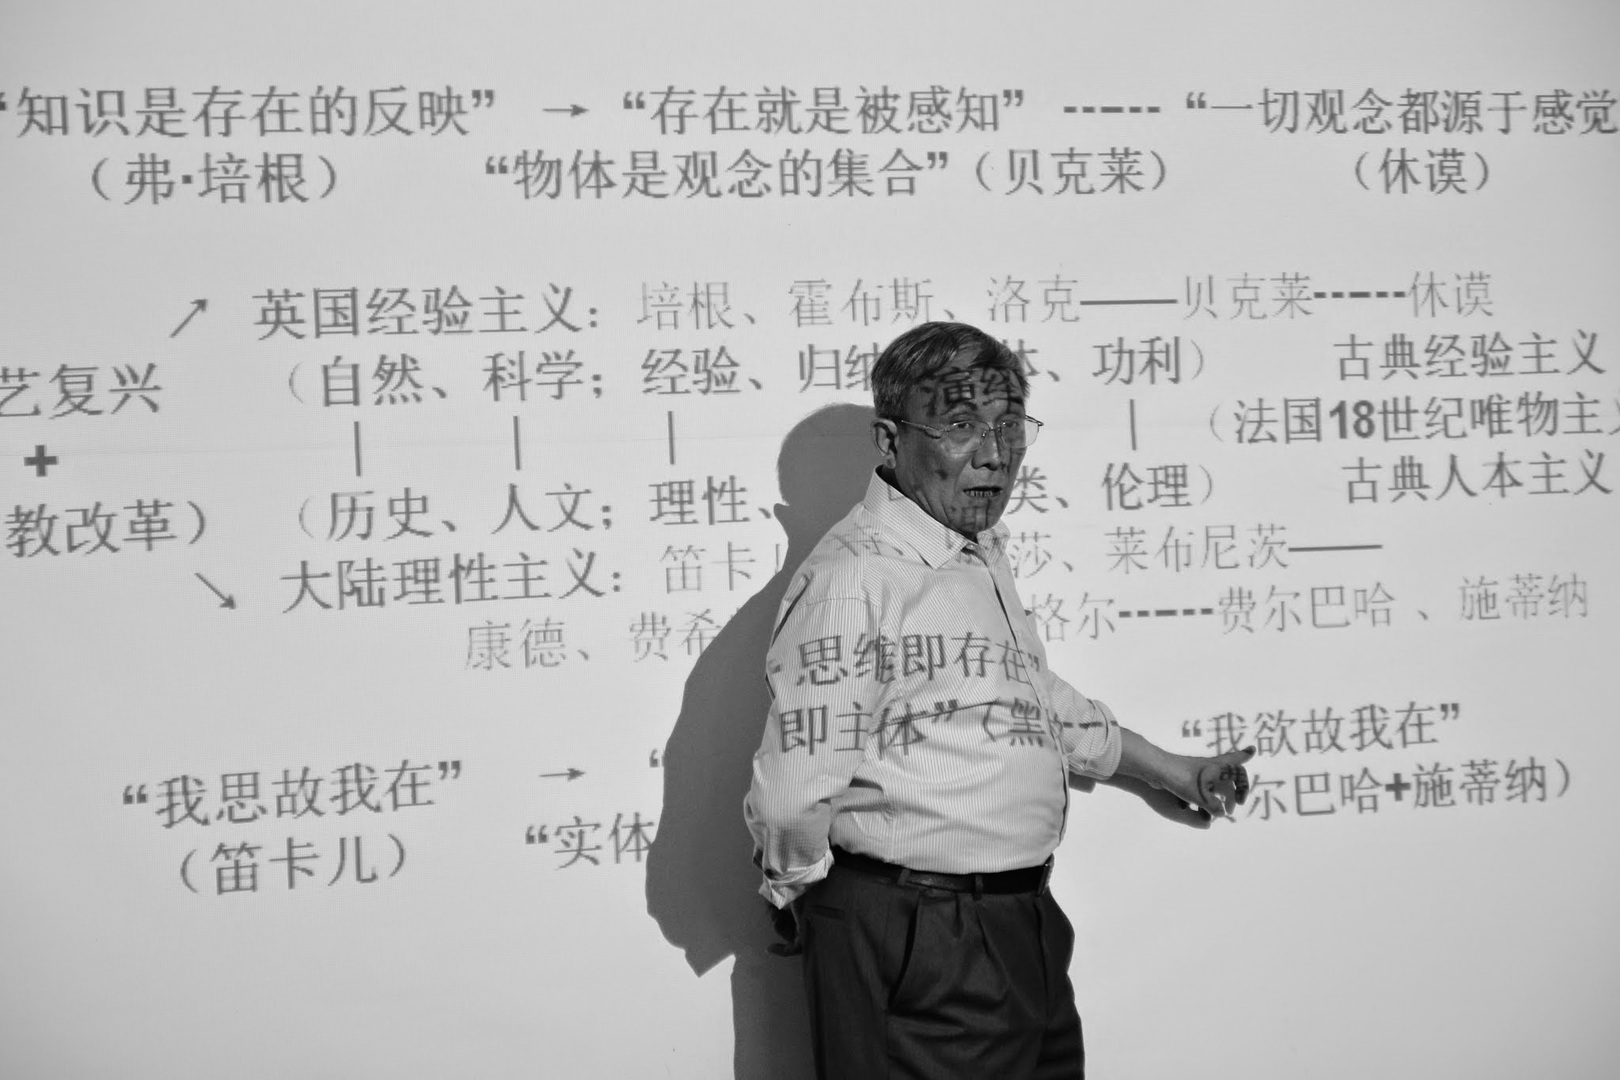 “知识是存在的反映” → “存在就是被感知” ----- “一切观念都源于感觉
（弗·培根） “物体是观念的集合”（贝克莱） （休谟）
↗ 英国经验主义：培根、霍布斯、洛克——贝克莱------休谟
艺复兴 （自然、科学；经验、归纳 体、功利） 古典经验主义
+ （法国18世纪唯物主义
教改革） （历史、人文；理性、演绎 类、伦理） 古典人本主义
↘ 大陆理性主义：笛卡 莎、莱布尼茨——
康德、费希 格尔------费尔巴哈、施蒂纳
思维即存在”
“我思故我在” → “ 即主体”（黑 ---- “我欲故我在”
（笛卡儿） “实体 尔巴哈+施蒂纳）